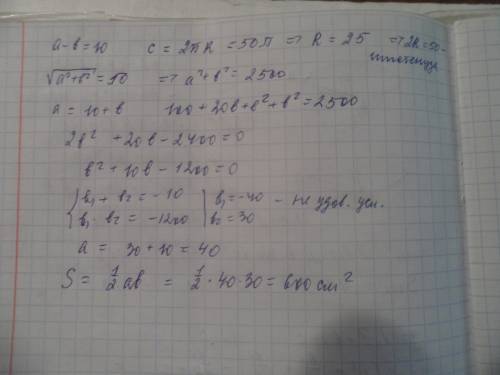 a-b=10 c = 2πR = 50π => R = 25 => 2R=50 -
гипотенуза
√a²+b² = 50 => a²+b² = 2500
a = 10+b 100 + 20b+b²+b² = 2500
2b² + 20b - 2400 = 0
b² + 10b - 1200 = 0
{ b₁ + b₂ = -10 | b₁ = -40 - не удов. усл.
b₁ · b₂ = -1200 | b₂ = 30
a = 30 + 10 = 40
S = 1/2 ab = 1/2 · 40 · 30 = 600 см²